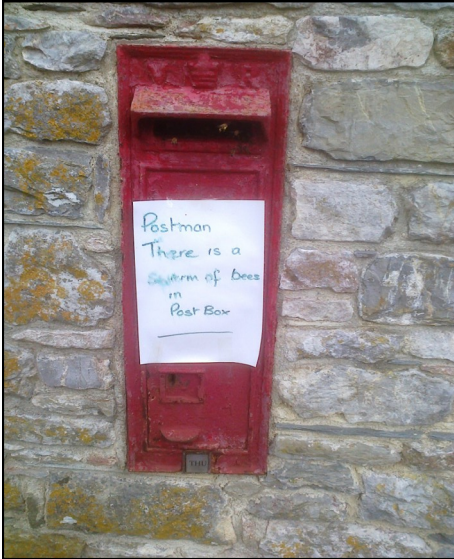 V R
Postman
There is a
swarm of bees
in
Post Box